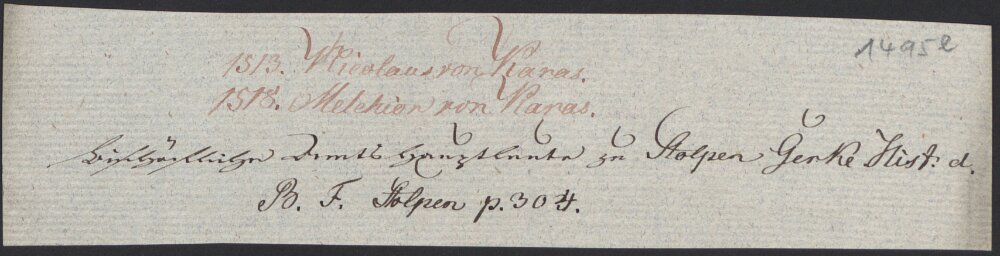 1495e
1513. Nicolaus von Karas.
1518. Melchior von Karas.
bischöffliche Amts Hauptleute zu Stolpen Gerke Hist: d.
B. F. Stolpen p. 304.